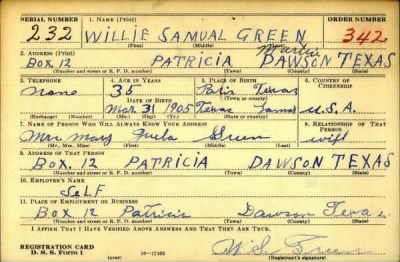 SERIAL NUMBER 1. NAME (Print) ORDER NUMBER
232 WILLIE SAMUAL GREEN 342
(First) (Middle) (Last)
2. ADDRESS (Print) Martin
BOX 12 PATRICIA DAWSON TEXAS
(Number and street or R. F. D. number) (Town) (County) (State)
3. TELEPHONE 4. AGE IN YEARS 5. PLACE OF BIRTH 6. COUNTRY OF CITIZENSHIP
None 35 Paris Texas
DATE OF BIRTH (Town or county)
Mar. 31 1905 Texas Lamar U.S.A.
(Exchange) (Number) (Mo.) (Day) (Yr.) (State or country)
7. NAME OF PERSON WHO WILL ALWAYS KNOW YOUR ADDRESS 8. RELATIONSHIP OF THAT PERSON
Mrs. Mary Green wife
(Mr., Mrs., Miss) (First) (Middle) (Last)
9. ADDRESS OF THAT PERSON
BOX, 12 PATRICIA DAWSON TEXAS
(Number and street or R. F. D. number) (Town) (County) (State)
10. EMPLOYER'S NAME
SELF
11. PLACE OF EMPLOYMENT OR BUSINESS
Box 12 Patricia Dawson Texas
(Number and street or R. F. D. number) (Town) (County) (State)
I AFFIRM THAT I HAVE VERIFIED ABOVE ANSWERS AND THAT THEY ARE TRUE.
REGISTRATION CARD
D. S. S. Form 1 (over) W. S. Green
(Registrant's signature)